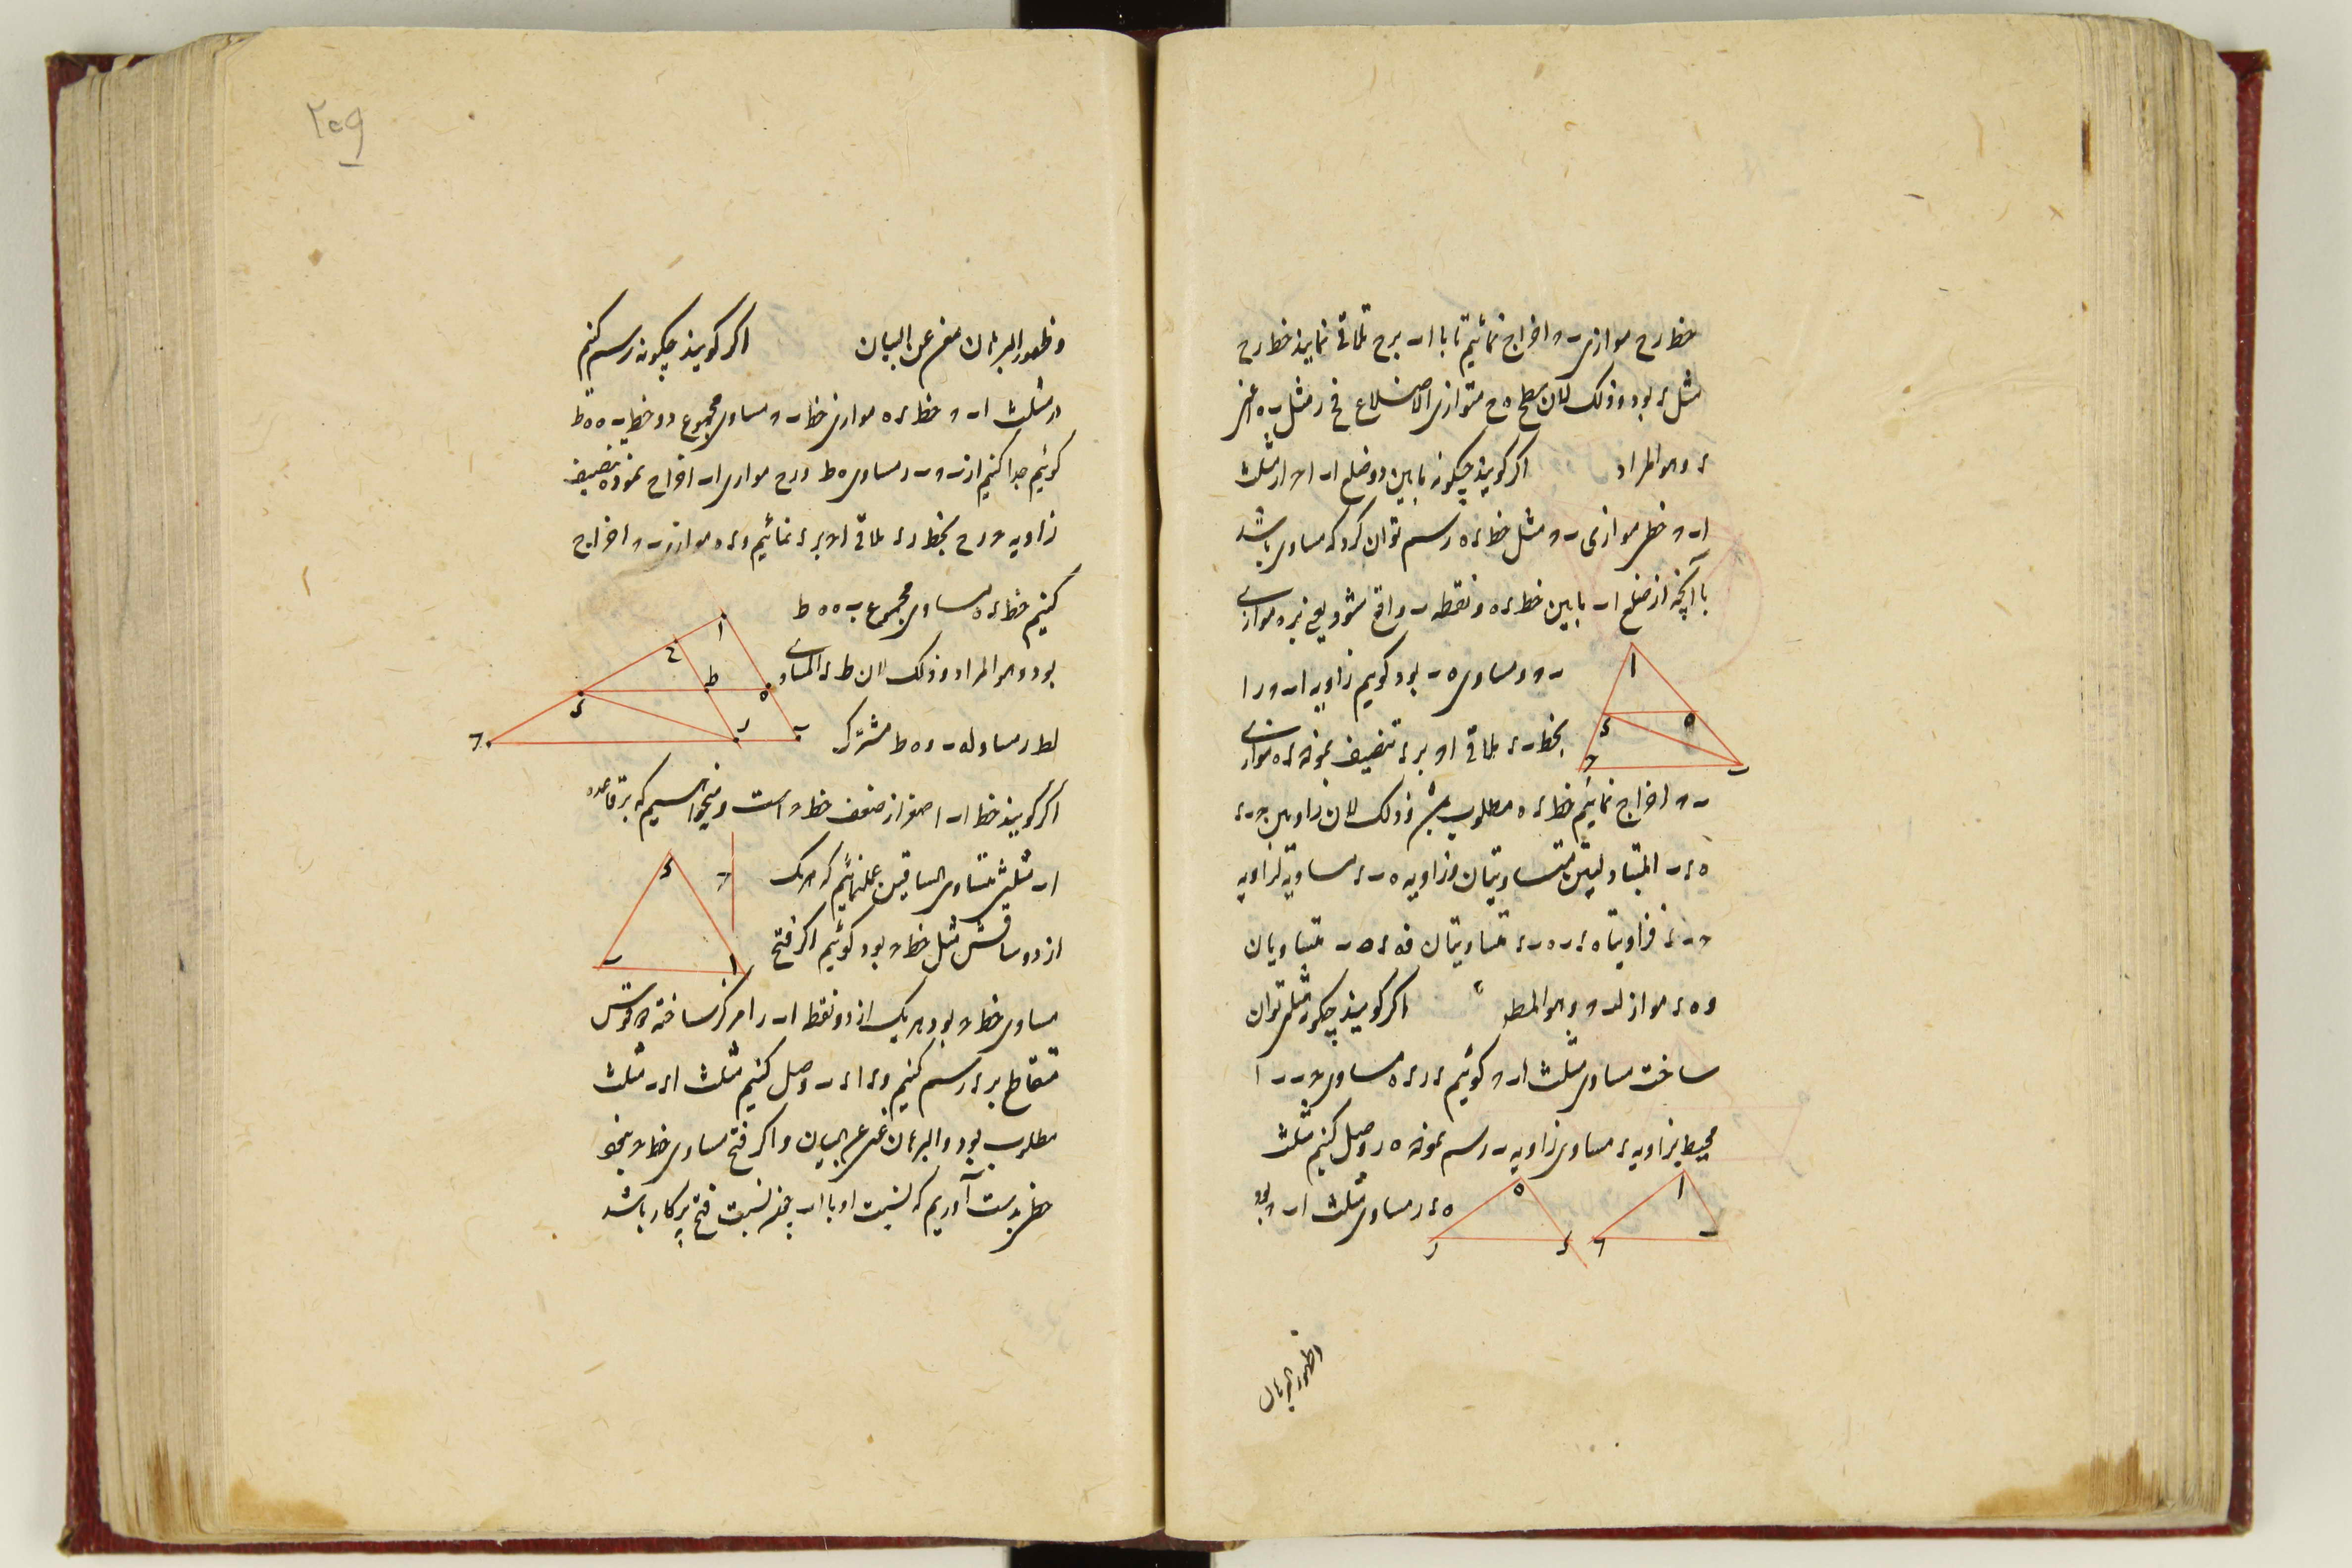 خط رح موازی ب ح اخراج نمائیم تا با اب بر ح تلاقی نماید خط رح
مثل ء بود و ذلک لان سطح ه ح متوازی الاضلاع فح ر مثل ب ه اعنی
ء و هو المراد اکر کویند چکونه ما بین دو ضلع اب اح از مثلث
اب ح خطی موازی ب ح مثل خط ء ه رسم توان کرد که مساوی باشد
با آنچه از ضلع اب ما بین خط ء ه و نقطه ب واقع شود یعنی ء ه موازی
ب ح و مساوی ه ب بود کویم زاویه اب ح را
بخط ب ء ملاقی اح بر ء تنصیف نموده ء ه موازی
ب ح اخراج نمائیم خط ء ه مطلوب باشد و ذلک لان زاویتین ح ب ء
ه ء ب المتبادلتین متساویتان و زاویه ه ب ء مساویه لزاویه
ح ب ء فزاویتا ه ء ب ه ب ء متساویتان فه ء ه ب متساویان
و ه ء مواز لب ح و هو المط اکر کویند چکونه مثلثی توان
ساخت مساوی مثلث اب ح کوئیم ء ر ء ه مساوی ح ب ب ا
محیط بزاویه ء مساوی زاویه ب رسم نموده ه ر وصل کنیم مثلث
ه ء ر مساوی مثلث اب ح بود
ا
ه
ء
ح
ب
ه
ر
ء
ا
ح
ب
و ظهور البرهان
۲۰۹
و ظهور البرهان مغن عن البیان اکر کویند چکونه رسم کنیم
در مثلث اب ح خط ء ه موازی خط ب ح مساوی مجموع دو خط ب ه ه ط
کوئیم جدا کنیم از ب ح ب ر مساوی ه ط و رح موازی اب اخراج نموده تنصیف
زاویه ح رح بخط ر ء ملاقی اح بر ء نمائیم و ء ه موازی ب ح اخراج
کنیم خط ء ه مساوی مجموع ب ه ه ط
بود و هو المراد و ذلک لان ط ء المساوی
لط ر مساو له ب و ه ط مشترک
اکر کویند خط اب اصغر از ضعف خط ح است و میخواهیم که بر قاعده
اب مثلث متساوی الساقین عمل نمائیم که هر یک
از دو ساقش مثل خط ح بود کوئیم اکر فتح
مساوی خط ح بود هر یک از دو نقطه اب را مرکز ساخته دو قوس
متقاطع بر ء رسم کنیم و ء ا ء ب وصل کنیم مثلث ا ء ب مثلث
مطلوب بود و البرهان غنی عن البیان و اکر فتح مساوی خط ح نبود
خطی بدست آوریم که نسبت او با اب چون نسبت فتح پرکار باشد
ا
ح
ط
ه
ء
ر
ب
ح
ء
ح
ا
ب